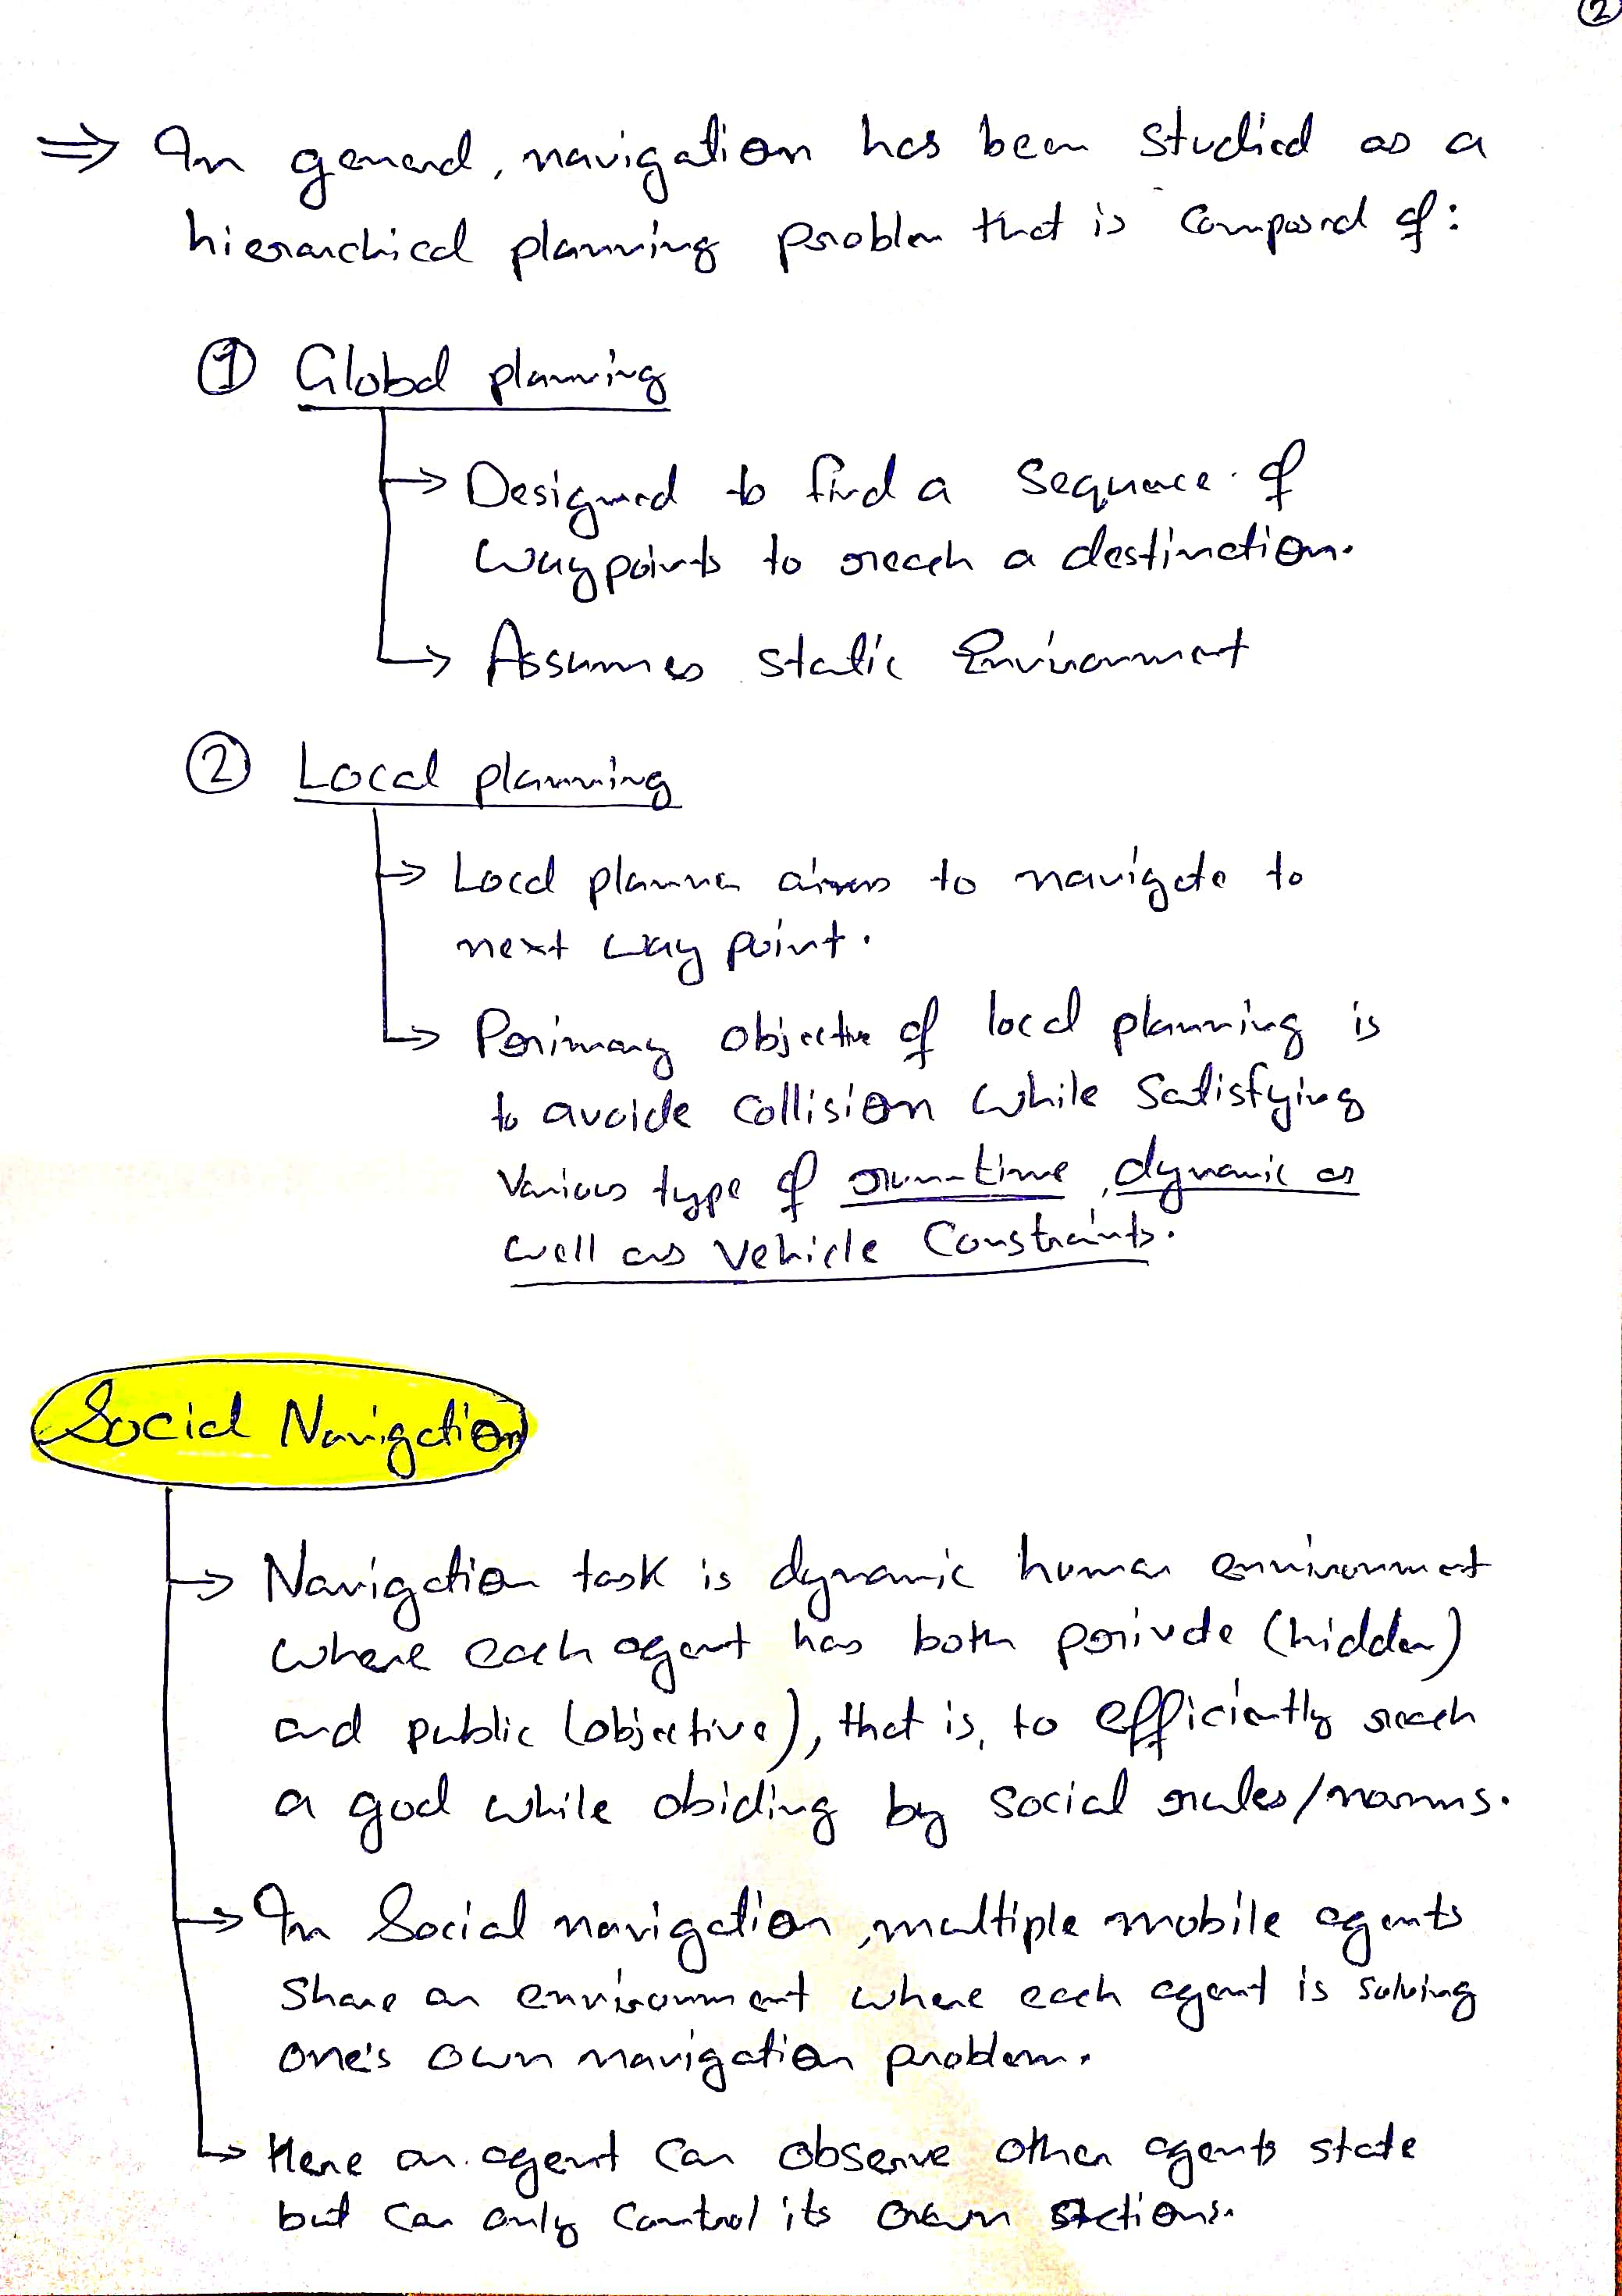 2
⇒ In general, navigation has been studied as a
hierarchical planning problem that is composed of:
① Global planning
→ Designed to find a sequence of
waypoints to reach a destination.
→ Assumes static Environment
② Local planning
→ Local planner aims to navigate to
next way point.
→ Primary objective of local planning is
to avoide collision while satisfying
various type of run-time, dynamic as
well as vehicle constraints.
Social Navigation
→ Navigation task is dynamic human environment
where each agent has both private (hidden)
and public (objective), that is, to efficiently reach
a goal while abiding by social rules/norms.
→ In Social navigation, multiple mobile agents
share an environment where each agent is solving
one's own navigation problem.
→ Here an agent can observe other agents state
but can only control its own actions.